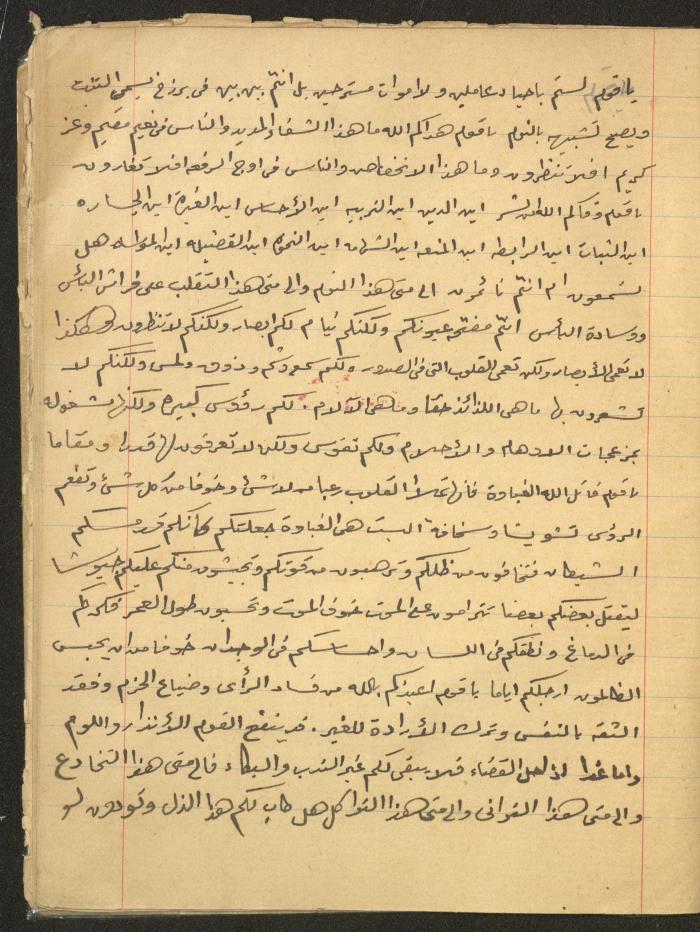 يا قوم لستم باحياء عاملين ولا اموات مستريحين بل انتم بين بين في برزخ يسمى التنبت
ويصح تشبيهه بالنوم يا قوم هداكم الله ما هذا الشقاء المديد والناس في نعيم مقيم وعز
كريم افلا تنظرون وما هذا الانخفاض والناس في اوج الرفعه افلا تغارون
يا قوم وقاكم الله من الشر اين الدين اين التربيه اين الأحساس اين الغيرة اين الجساره
اين الثبات اين الرابطه اين المنعه اين الشهامه اين النخوة اين الفضيله اين المؤاساه هل
تسمعون ام انتم نائمون الى متى هذا النوم والى متى هذا التقلب على فراش البأس
ووسادة اليأس انتم مفتحه عيونكم ولكنكم نيام لكم ابصار ولكنكم لا تنظرون وهكذا
لا تعمى الأبصار ولكن تعمى القلوب التي في الصدور ولكم سمع وشم وذوق ولمس ولكنكم لا
تشعرون بها ما هي اللذائذ حقا وما هي الآلام . لكم رؤوس كبيره ولكنها مشغوله
بمزعجات الاوهام والأحلام ولكم نفوس ولكن لا تعرفون لها قدرا ومقاما
يا قوم قاتل الله الغباوة فأنها تملأ القلوب رعبا من لا شئ وخوفا من كل شئ وتفعم
الرؤس تشويشا وسخافة اليست هي الغباوة جعلتكم كأنكم قد مسكم
الشيطان فتخافون من ظلكم وترهبون من قوتكم وتجيشون منكم عليكم جيوشا
ليقتل بعضكم بعضا تترامون على الموت خوف الموت وتحبسون طول العمر فكركم
في الدماغ ونطقكم في اللسان واحساسكم في الوجدان خوفا من ان يحبس
الظالمون ارجلكم اياما يا قوم اعيذكم بالله من فساد الرأى وضياع الحزم وفقد
الثقه بالنفس وترك الأرادة للغير . قد ينفع القوم الأنذار واللوم
واما غدا اذا حل القضاء فلا يبقى لكم غير الندب والبكاء فالى متى هذا التخادع
والى متى هذا التوانى والى متى هذا التواكل هل طاب لكم هذا الذل وتودون لو